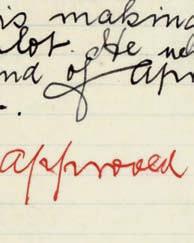 is making
lot. He
nd of Apr
approved